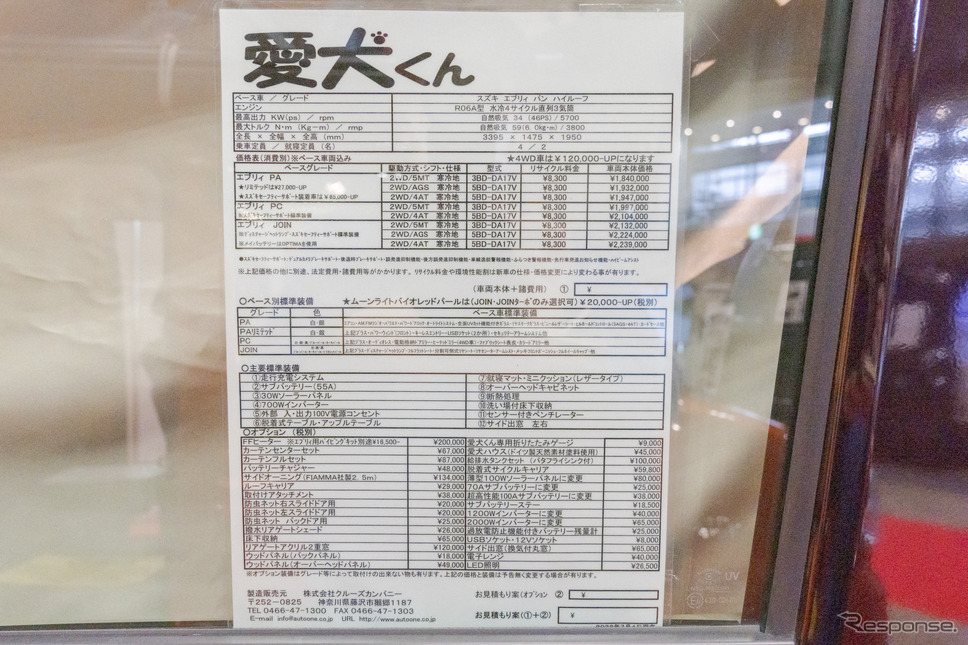 愛犬くん
ベース車 / グレード スズキ エブリィ バン ハイルーフ
エンジン R06A型 水冷4サイクル直列3気筒
最高出力 KW(ps) / rpm 自然吸気 34 (46PS) / 5700
最大トルク N・m (Kg-m) / rmp 自然吸気 59(6.0kg・m) / 3800
全長 × 全幅 × 全高 (mm) 3395 × 1475 × 1950
乗車定員 / 就寝定員 (名) 4 / 2
価格表(消費別)※ベース車両込み ★4WD車は¥120,000-UPになります
ベースグレード 駆動方式・シフト・仕様 型式 リサイクル料金 車両本体価格
エブリィ PA 2WD/5MT 寒冷地 3BD-DA17V ¥8,300 ¥1,840,000
★リミテッドは¥27,000-UP 2WD/AGS 寒冷地 5BD-DA17V ¥8,300 ¥1,932,000
★スズキセーフティーサポート装着車は¥83,000-UP 2WD/4AT 寒冷地 5BD-DA17V ¥8,300 ¥1,947,000
エブリィ PC 2WD/5MT 寒冷地 3BD-DA17V ¥8,300 ¥1,997,000
※スズキセーフティーサポート標準装備 2WD/4AT 寒冷地 5BD-DA17V ¥8,300 ¥2,104,000
エブリィ JOIN 2WD/5MT 寒冷地 3BD-DA17V ¥8,300 ¥2,132,000
※ディスチャージヘッドランプ・スズキセーフティーサポート標準装備 2WD/AGS 寒冷地 5BD-DA17V ¥8,300 ¥2,224,000
※メイバッテリーはOPTIMAを使用 2WD/4AT 寒冷地 5BD-DA17V ¥8,300 ¥2,239,000
●スズキセーフティーサポート:デュアルカメラブレーキサポート・後退時ブレーキサポート・誤発進抑制機能・後方誤発進抑制機能・車線逸脱警報機能・ふらつき警報機能・先行車発進お知らせ機能・ハイビームアシスト
※上記価格の他に別途、法定費用・諸費用等がかかります。リサイクル料金や環境性能割は新車の仕様・価格変更により変わる事が有ります。
(車両本体+諸費用) ① ¥
○ベース別標準装備 ★ムーンライトバイオレッドパールは(JOIN・JOINターボのみ選択可)¥20,000-UP(税別)
グレード 色 ベース車標準装備
PA 白・銀
PAリミテッド 白・銀
PC
JOIN
○主要標準装備
①走行充電システム ⑦就寝マット・ミニクッション(レザータイプ)
②サブバッテリー(55A) ⑧オーバーヘッドキャビネット
③30Wソーラーパネル ⑨断熱処理
④700Wインバーター ⑩洗い場付床下収納
⑤外部 入・出力100V電源コンセント ⑪センサー付きベンチレーター
⑥脱着式テーブル・アップルテーブル ⑫サイド出窓 左右
○オプション (税別)
FFヒーター ※エブリィ用パイピングキット別途¥16,500- ¥200,000 愛犬くん専用折りたたみゲージ ¥9,000
カーテンセンターセット ¥67,000 愛犬ハウス(ドイツ製天然素材塗料使用) ¥45,000
カーテンフルセット ¥87,000 給排水タンクセット (バタフライシンク付) ¥100,000
バッテリーチャージャー ¥48,000 脱着式サイクルキャリア ¥59,800
サイドオーニング(FIAMMA社製2.5m) ¥134,000 薄型100Wソーラーパネルに変更 ¥80,000
ルーフキャリア ¥29,000 70Aサブバッテリーに変更 ¥25,000
取付けアタッチメント ¥38,000 超高性能100Aサブバッテリーに変更 ¥38,000
防虫ネット右スライドドア用 ¥20,000 サブバッテリーステー ¥18,500
防虫ネット左スライドドア用 ¥20,000 1200Wインバーターに変更 ¥40,000
防虫ネット バックドア用 ¥25,000 2000Wインバーターに変更 ¥65,000
撥水リアゲートシェード ¥26,000 過放電防止機能付きバッテリー残量計 ¥25,000
床下収納 ¥65,000 USBソケット・12Vソケット ¥8,000
リアゲートアクリル2重窓 ¥120,000 サイド出窓(換気付丸窓) ¥65,000
ウッドパネル(バックパネル) ¥18,000 電子レンジ ¥40,000
ウッドパネル(オーバーヘッドパネル) ¥49,000 LED照明 ¥26,500
※オプション装備はグレード等によって取付けの出来ない物も有ります。上記の価格と装備は予告無く変更する場合が有ります。
製造販売元 株式会社クルーズカンパニー お見積もり案(オプション ② ¥
〒252-0825 神奈川県藤沢市獺郷1187
TEL 0466-47-1300 FAX 0466-47-1303 お見積もり案(①+②) ¥
E-mail info@autoone.co.jp URL http://www.autoone.co.jp
UV
Response.